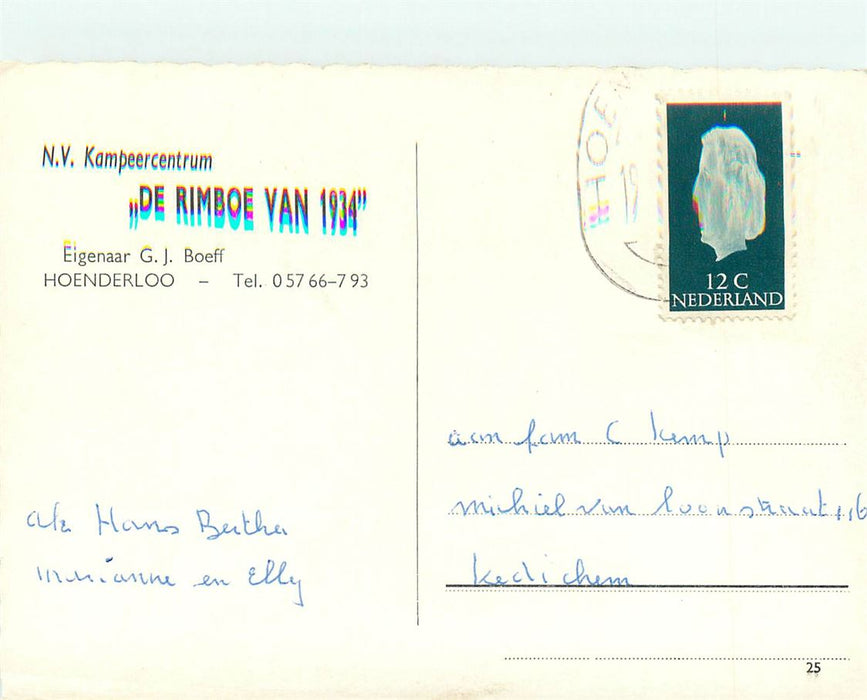 N.V. Kampeercentrum
„DE RIMBOE VAN 1934”
Eigenaar G. J. Boeff
HOENDERLOO – Tel. 0 57 66–7 93
HOEN
12 C
NEDERLAND
aan fam C Kemp
michiel van loonstraat
Kedichem
Hans Bertha
Marianne en Elly
25